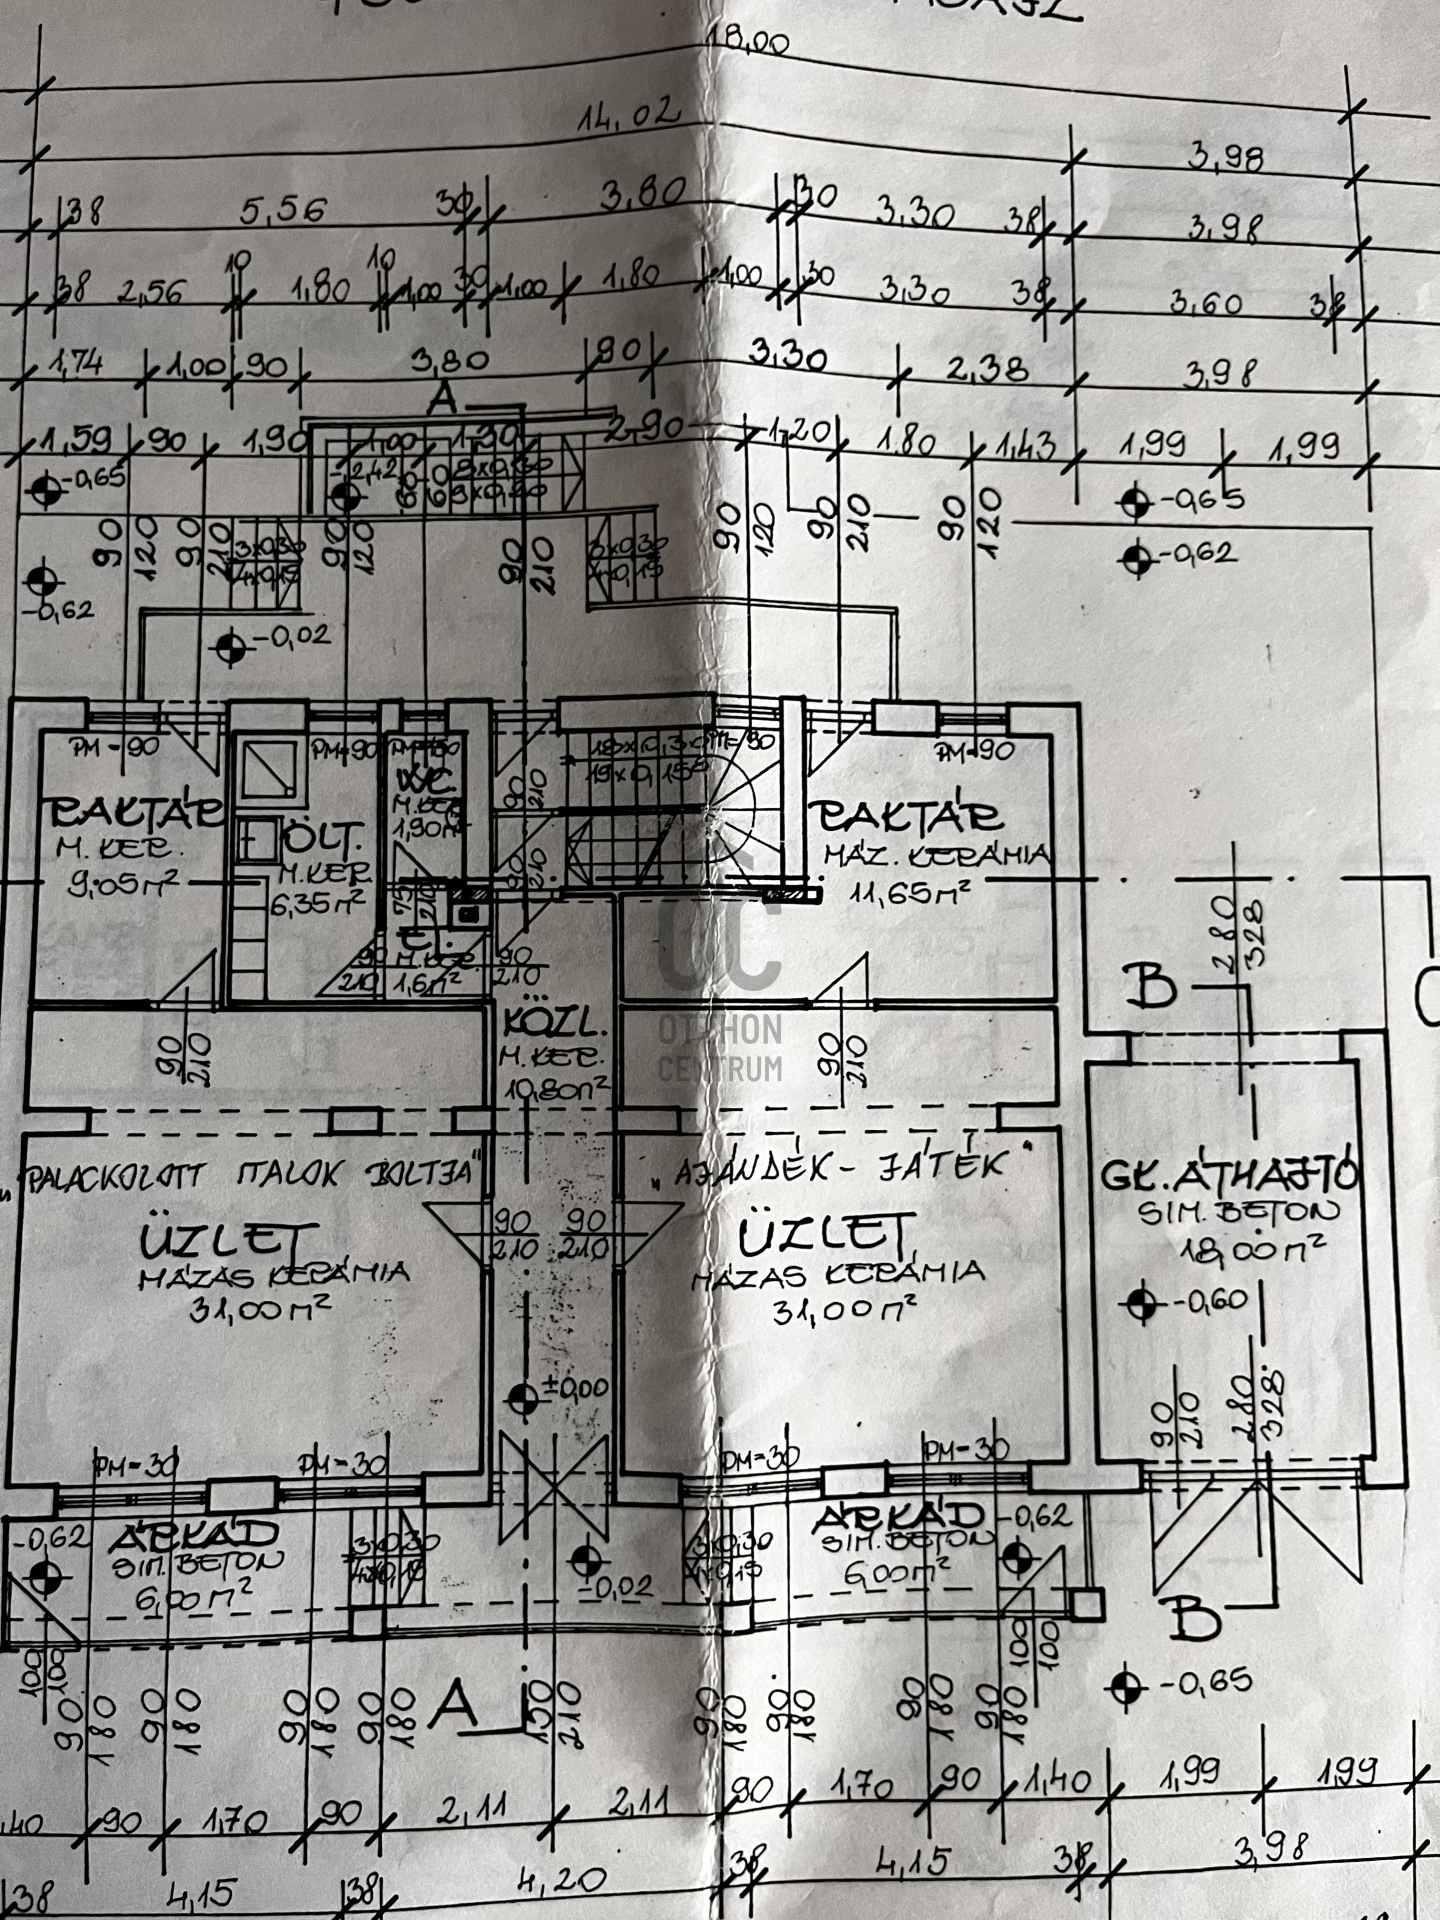 18,00
14,02
3,98
38 5,56 30 3,80 30 3,30 38 3,98
38 2,56 10 1,80 10 1,00 30 1,00 1,80 1,00 30 3,30 38 3,60 38
1,74 1,00 90 3,80 90 3,30 2,38 3,98
A
1,59 90 1,90 1,00 1,90 2,90 1,20 1.80 1,43 1,99 1,99
-0,65
-2,42
-0,65
90 120 90 210 90 120 90 210 90 120 90 210 90 120
3x0,30
4x0,15
3x0,30
4x0,15
-0,62
-0,62
-0,02
PM-90 PM-90 PM=90 PM-90
18x0,30
19x0,15⁶
RAKTÁR
M. KER.
9,05m²
ÖLT.
M.KER.
6,35m²
WC.
M.KER.
1,90m²
90 210
90 210
RAKTÁR
MÁZ. KERÁMIA
11,65m²
75 210
E.
M.KER.
1,6m²
90 210
90 210
280 328
B
KÖZL.
M.KER.
10,80m²
90 210
90 210
OC
OTTHON
CENTRUM
"PALACKOZOTT ITALOK BOLTJA"
ÜZLET
MÁZAS KERÁMIA
31,00m²
90 210
90 210
"AJÁNDÉK-JÁTÉK"
ÜZLET
MÁZAS KERÁMIA
31,00m²
GK.ÁTHAJTÓ
SIM. BETON
18,00m²
-0,60
±0,00
90 210
280 328
PM=30 PM=30 PM=30 PM=30
-0,62
ÁRKÁD
SIM. BETON
6,00m²
3x0,30
4x0,15
-0,02
3x0,30
4x0,15
ÁRKÁD
SIM. BETON
6,00m²
-0,62
B
100 100
100 100
A
-0,65
90 180 90 180 90 180 90 180 150 210 90 180 90 180 90 180 90 180
,40 90 1,70 90 2,11 2,11 90 1,70 90 1,40 1,99 1,99
38 4,15 38 4,20 38 4,15 38 3,98